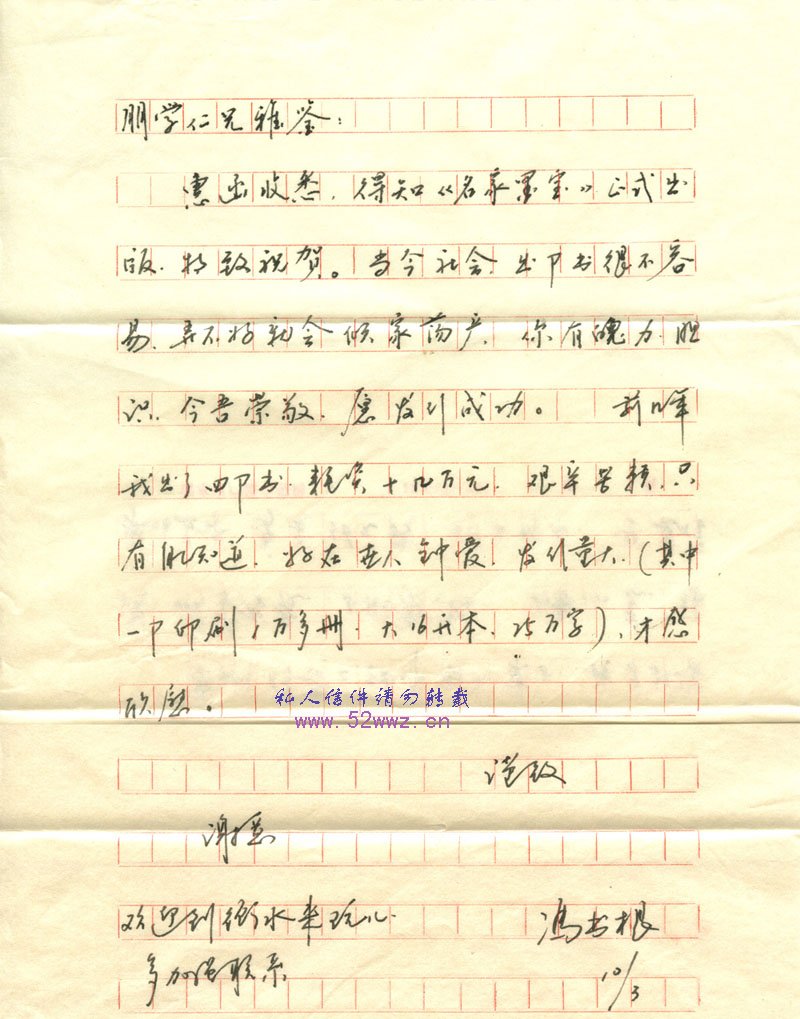 朋学仁兄雅鉴：
惠函收悉，得知《名家墨宝》正式出
版，特致祝贺。当今社会，出部书很不容
易，弄不好就会倾家荡产，你有魄力，胆
识，令吾崇敬，愿发行成功。前几年
我出了四部书，耗资十几万元，艰辛苦辣，只
有自己知道，好在世人钟爱，发行量大，(其中
一部印刷1万多册，大16开本，25万字)，才感
欣慰。
私人信件请勿转载
www.52wwz.cn
谨致
谢意
欢迎到衡水来玩儿
冯书根
多加强联系
10/3